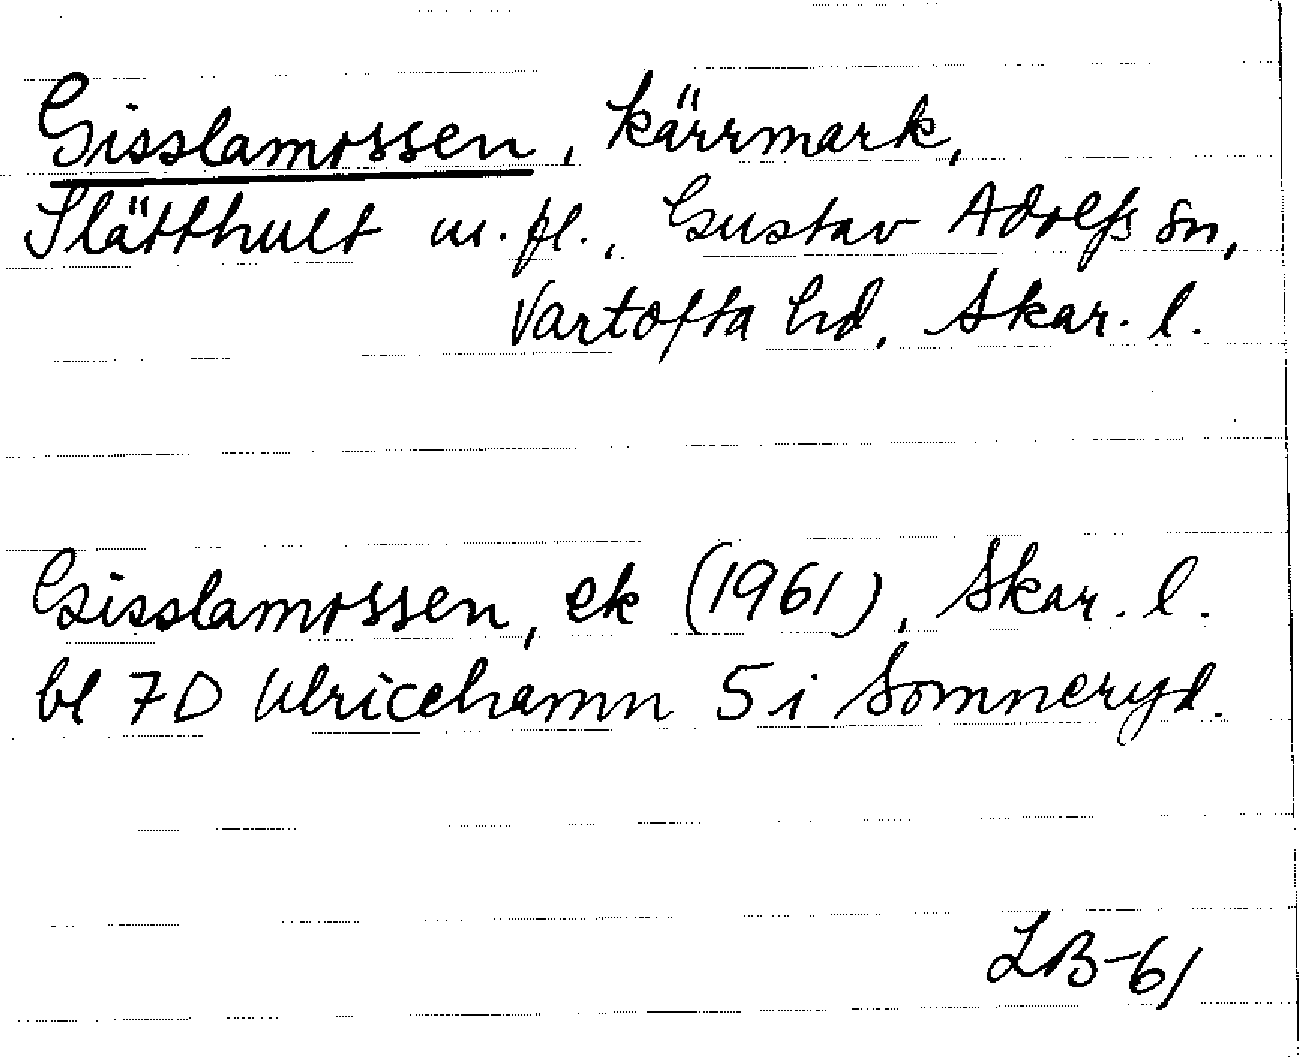 Gisslamossen, kärrmark,
Slätthult m. fl., Gustav Adolfs sn,
Vartofta hd, Skar. l.
Gisslamossen, ek (1961), Skar. l.
bl 7D Ulricehamn 5i Sömneryd.
LB-61